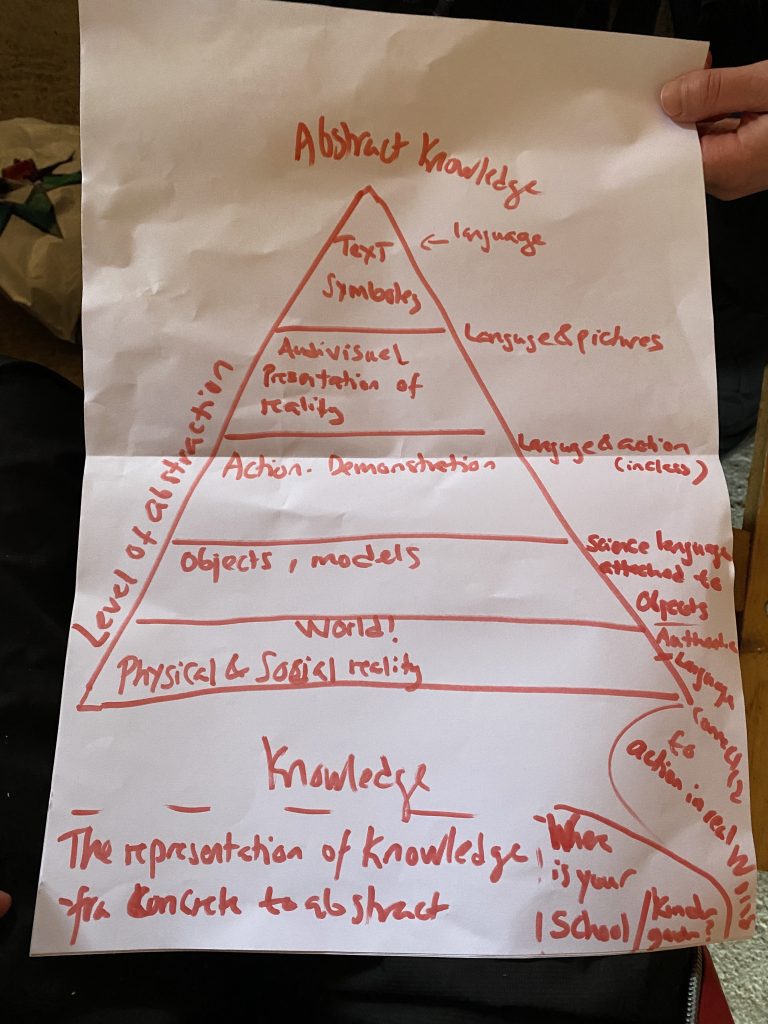 Abstract Knowledge
Text
← language
Symboles
Languge & pictures
Audivisuel
Presentation of
reality
Languge & action
(inclass)
Action - Demonstration
Level of abstraction
Objects, models
Science language
attached to
Objects
World!
Physical & Social reality
Language
to
action in real
Knowledge
The representation of Knowledge
fra Concrete to abstract
is your
School /